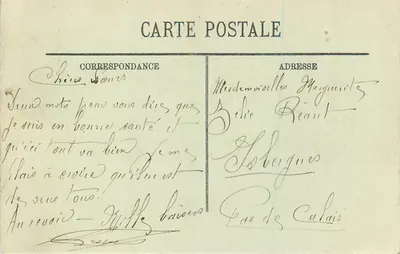 CARTE POSTALE
CORRESPONDANCE
Chères sœurs
Deux mots pour vous dire que
je suis en bonne santé et
qu'ici tout va bien je me
plais à croire qu'il en est
de vous tous.
Au revoir - Mille baisers
ADRESSE
Mesdemoiselles Marguerite
Zélie Réant
Isbergues
Pas de Calais